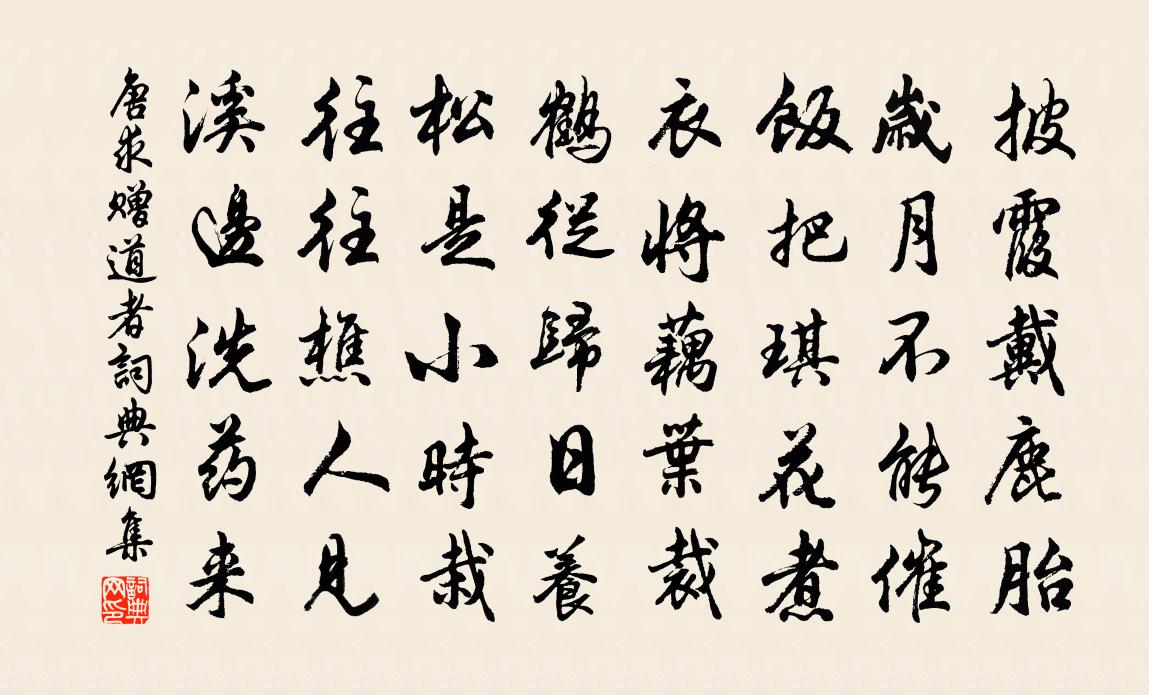 披霞戴鹿胎
歳月不能催
飯把琪花煮
衣將藕葉裁
鶴從歸日養
松是小時栽
往往樵人見
溪邊洗药来
唐求赠道者詞典網集
詞典网印